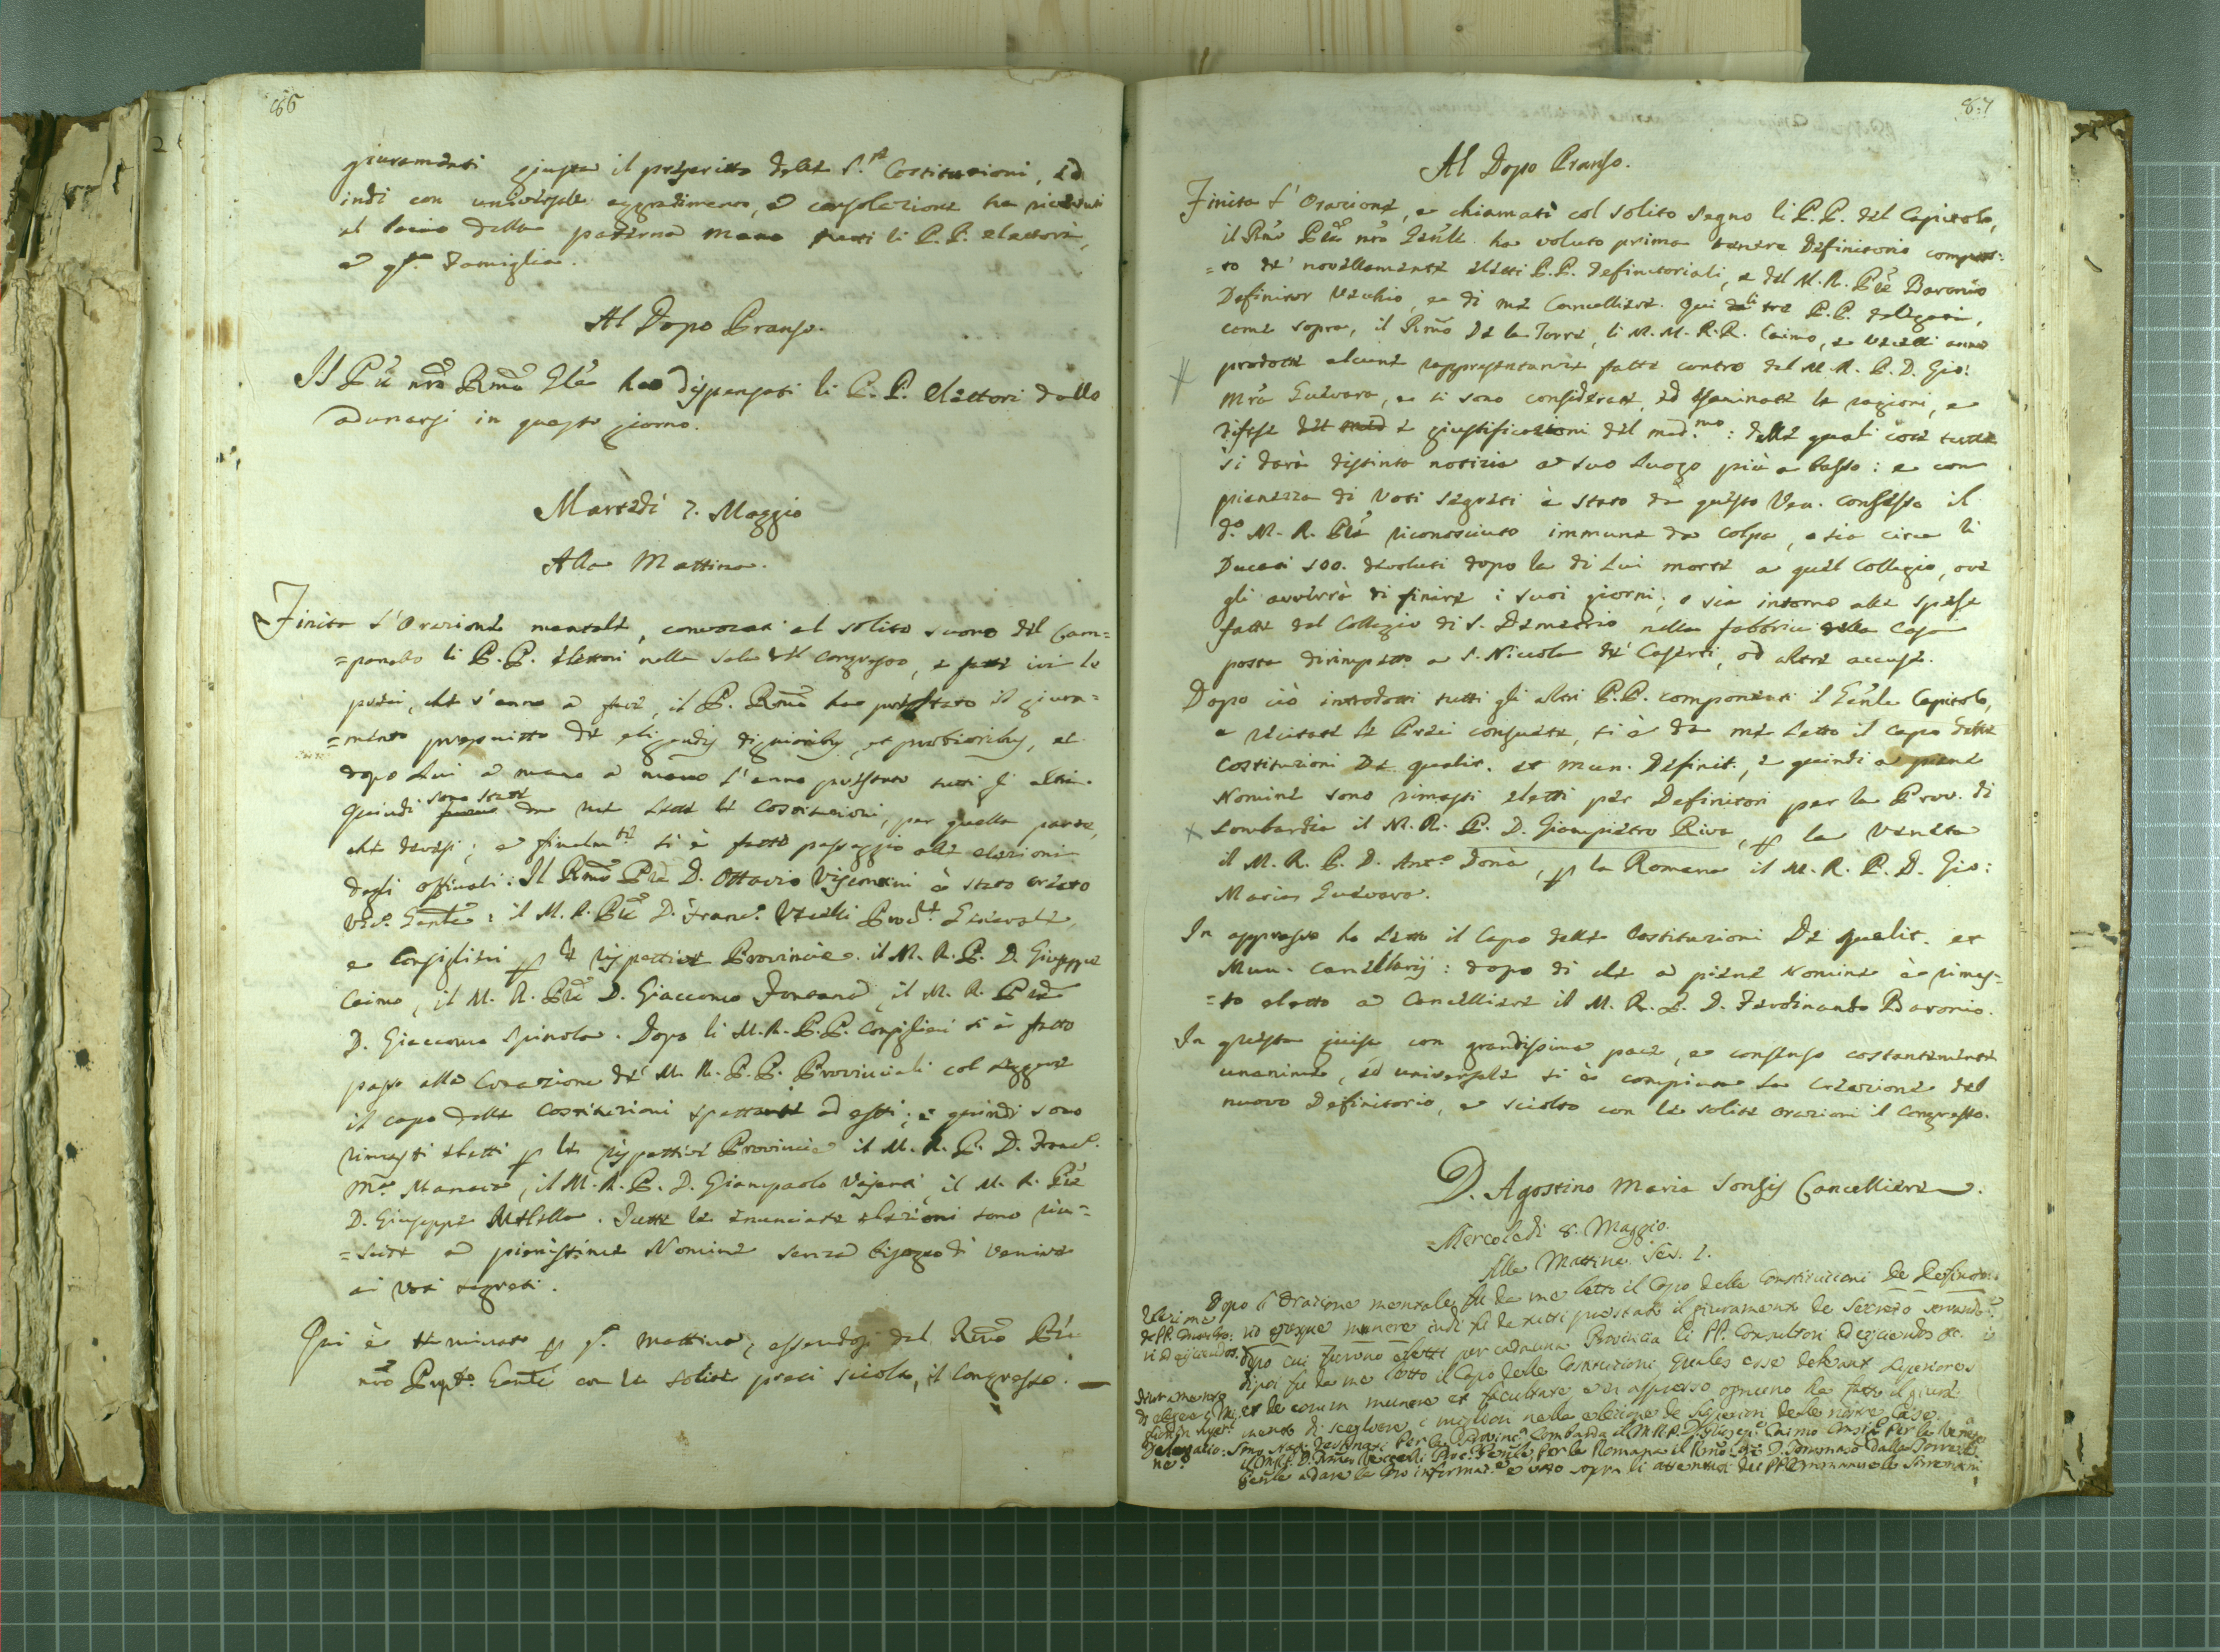 86
giuramenti giusta il prescritto delle S.te Costituzioni, ed
indi con universale aggradimento, e consolazione ha ricevuti
al bacio della paterna mano tutti li P.P. elettori,
e qta. famiglia.
Al Dopo Pranso.
Il Pre nro Rmo Gle ha dispensati li P.P. elettori dallo
adunarsi in questo giorno.
Martedì 7. Maggio
Alla Mattina.
Finita l'Orazione mentale, convocati al solito suono del Cam=
=panello li P.P. elettori nella sala del congresso, e fatte ivi le
preci, che s'anno a fare, il P. Rmo ha prestato il giura=
=mento prescritto de eligendis dignioribus, et probioribus, et
dopo Lui a mano a mano l'anno prestato tutti gl'altri.
Quindi sono state da me lette le Costituzioni, per quella parte,
che devesi; e finalm.te si è fatto passaggio alle elezioni
degli offiziali: Il Rmo Pre D. Ottavio Visconti è stato creato
Vic.o Genle: il M. R. Pre D. Franc.o Vecelli Proc.re Generale,
e Consiglieri p le rispettive Provincie. il M. R. P. D. Giuseppe
Caimo, il M. R. Pre D. Giaccomo Fontana, il M. R. Pre
D. Giaccomo Spinola. Dopo li M.R.P.P. Consiglieri si è fatto
passo alla Creazione de' M. R. P. P. Provinciali col leggere
il capo delle Costituzioni spettante ad essi; e quindi sono
rimasti eletti p le rispettive Provincie il M. R. P. D. Franc.o
M.a Manara, il M. R. P. D. Giampaolo Vajenti, il M. R. Pre
D. Giuseppe Melella. Tutte le enunciate elezioni sono riu=
=scite a pienissime Nomine senza bisogno di venire
ai voti segreti.
Qui è terminato p q.a mattina, essendosi dal Rmo Pre
nro Prepto. Genle con le solite preci sciolto il Congresso.
8:7
Al Dopo Pranso.
Finita l'Orazione, e chiamati col solito segno li P.P. del Capitolo,
il Rmo Pre nro Genle ha voluto prima tenere Definitorio compos:
=to de' novellamente eletti P.P. Definitoriali, e del M. R. Pre Baronio
Definitor Vecchio, e di me Cancelliere. Qui li tre P.P. delegati,
come sopra, il Rmo De la Torre, li M. M. R. R. Caimo, e Vecelli anno
prodotte alcune rappresentanze fatte contro del M. R. P. D. Gio:
Mra Guevara, e si sono considerate, ed esaminate le ragioni, e
difese del med e giustificazioni del med.mo: delle quali cose tutte
si darà distinta notizia a suo luogo più a basso: e con
pienezza di voti segreti è stato da questo Ven. Consesso il
d.o M. R. Pre riconosciuto immune da colpa, o sia circa li
Ducati 100. devoluti dopo la di Lui morte a quel Collegio, ove
gli avverrà di finire i suoi giorni; o sia intorno alle spese
fatte dal Collegio di S. Demetrio nella fabbrica della Casa
posta dirimpetto a S. Niccola de' Caserti, od altre accuse.
Dopo ciò introdotti tutti gli altri P.P. componenti il Genle Capitolo,
e recitate le Preci consuete, si è da me letto il capo delle
Costituzioni De qualit. et mun. Definit., e quindi a piene
Nomine sono rimasti eletti per Definitori per la Prov. di
Lombardia il M. R. P. D. Giampietro Riva, p la Veneta
il M. R. P. D. Ant.o Donà, p la Romana il M. R. P. D. Gio:
Maria Guevara.
In appresso ho letto il Capo delle Costituzioni De qualit. et
Mun. Cancellarij: dopo di che a piene Nomine è rimas=
=to eletto a Cancelliere il M. R. P. D. Ferdinando Baronio.
In questa guisa con grandissima pace, e consenso costantemente
unanime, ed universale si è compiuta la creazione del
nuovo Definitorio, e sciolto con le solite orazioni il Congresso.
D. Agostino Maria Songis Cancelliere.
Mercoledì 8. Maggio.
Alla Mattina Ses. I.
Dopo l'Orazione mentale, fu da me letto il Capo delle Constituzioni de Definitori
eorumque munere indi fu da tutti prestato il giuramento de secreto servando
dopo cui furono eletti per caduna Provincia li PP. Consultori
dipoi fu da me letto il Capo delle Constituzioni quales esse debeant Superiores
et de eorum munere et facultate ed in appresso ognuno ha fatto il giura
mento di scegliere i migliori nella elezione de Superiori delle nostre Case.
Delegatio: Sono stati destinati per la Provinc.a Lombarda il M.R.P.D. Gius.e Caimo Consig.e per la Veneta
ne.